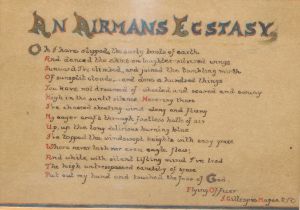 AN AIRMANS ECSTASY
Oh I have slipped the surly bonds of earth
And danced the skies on laughter-silvered wings
Sunward I've climbed, and joined the tumbling mirth
Of sunsplit clouds, and done a hundred things
You have not dreamed of wheeled and soared and swung
High in the sunlit silence Hovering there
I've chased the shouting wind along and flung
My eager craft through footless halls of air
Up, up the long delirious burning blue
I've topped the windswept heights with easy grace
Where never lark nor even eagle flew;
And while with silent lifting mind I've trod
The high untrespassed sanctity of space
Put out my hand and touched the face of God
Flying Officer
J Gillespie Magee